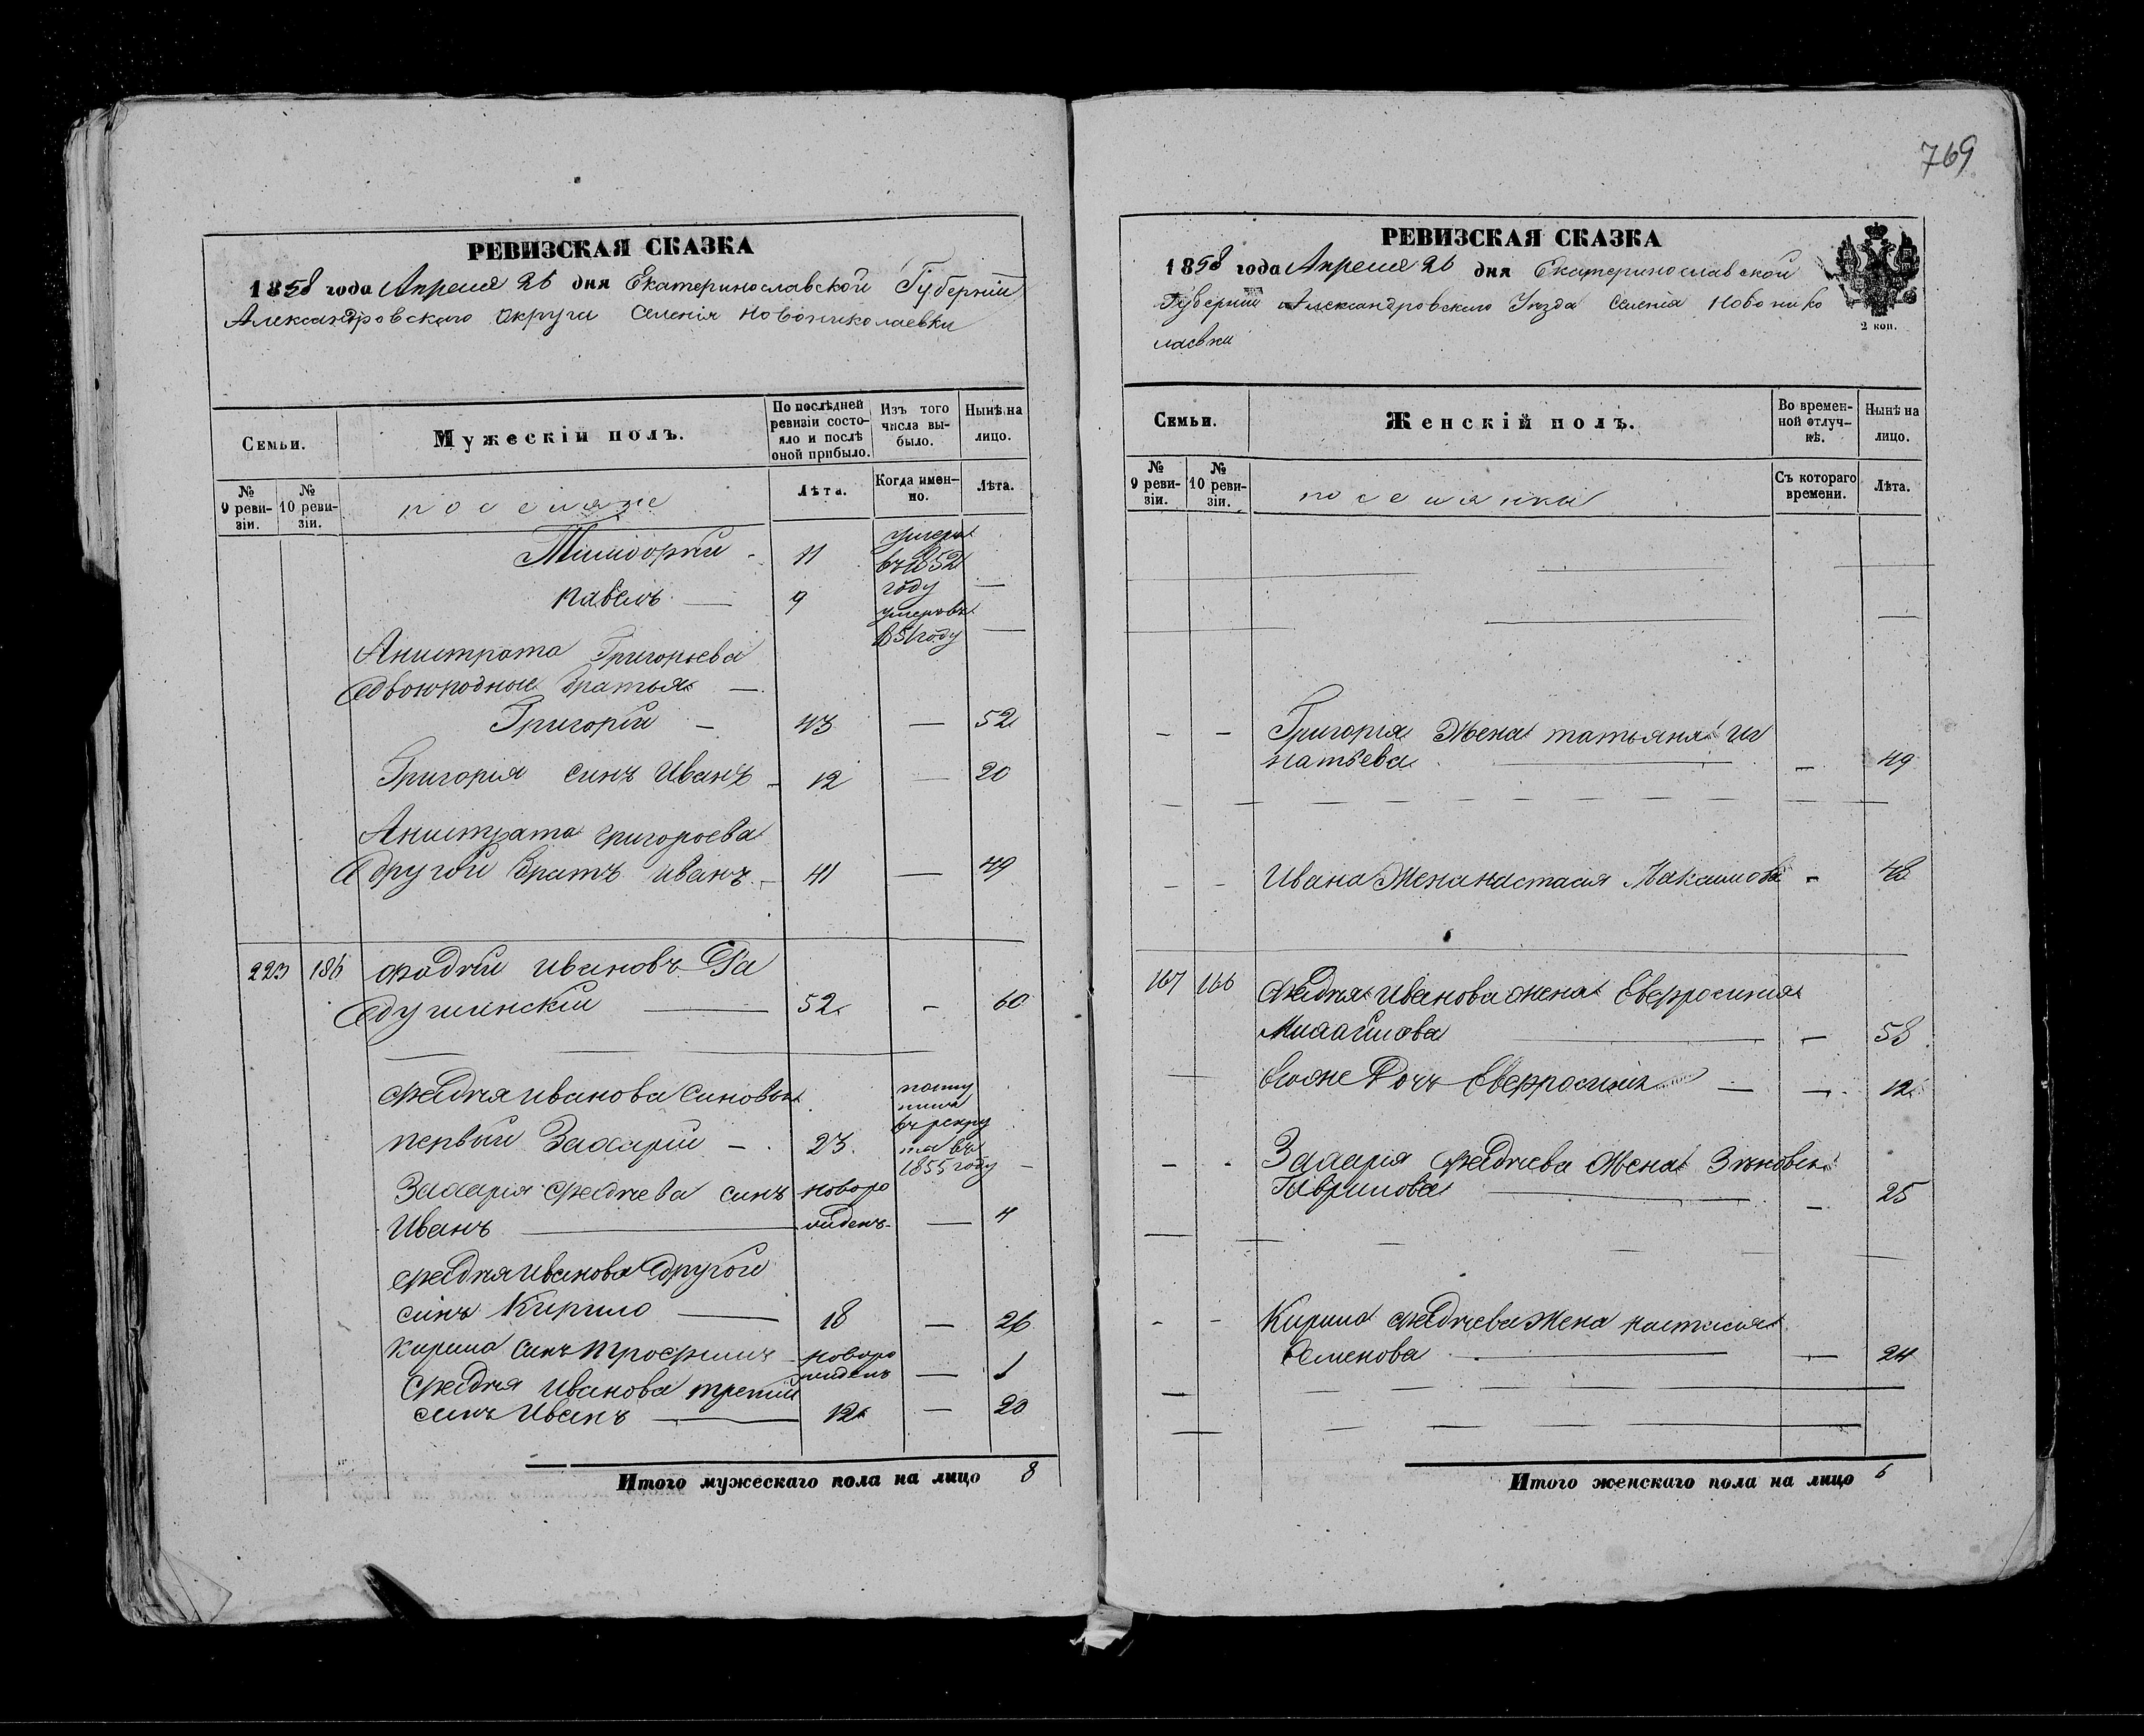 769
РЕВИЗСКАЯ СКАЗКА
1858 года Апреля 26 дня Екатеринославской Губерніи
Александровскаго округа Селенія Новониколаевки
Семьи.
Мужескій полъ.
По послѣдней ревизіи состояло и послѣ оной прибыло.
Изъ того числа выбыло.
Нынѣ на лицо.
№ 9 ревизіи.
№ 10 ревизіи.
поселяне
Лѣта.
Когда именно.
Лѣта.
11 умеръ въ 1852 году —
Павелъ — 9 умеръ въ 1851 году —
Григорьева
двоюродные братья —
Григорій — 43 — 52
Григорія синъ Иванъ — 12 — 20
Григорьева
другой братъ иванъ — 41 — 49
223 186 ивановъ Ра
душинскій — 52 — 60
иванова синовья
первый Захарій — 23 въ рекру
та въ
1855 году —
Захарія синъ новоро
Иванъ — жденъ — 4
Иванова другой
синъ Кирило — 18 — 26
Кирила синъ Трофимъ новоро
жденъ — 1
Иванова третій
синъ Иванъ — 12 — 20
Итого мужескаго пола на лицо 8
РЕВИЗСКАЯ СКАЗКА
1858 года Апреля 26 дня Екатеринославской
Губерніи Александровскаго Уезда Селенія Новонико
лаевки
2 коп.
Семьи.
Женскій полъ.
Во временной отлучкѣ.
Нынѣ на лицо.
№ 9 ревизіи.
№ 10 ревизіи.
поселянки
Съ котораго времени.
Лѣта.
— — Григорія Жена татьяна Иг
натьева — — 49
— — Ивана Жена настасия Максимова — 48
167 166 Иванова жена Евфросиния
— — 58
Евфросинія — — 12
— — Захарія жена
Гаврилова — — 25
— — Кирила Жена настасия
Семенова — — 24
Итого женскаго пола на лицо 6